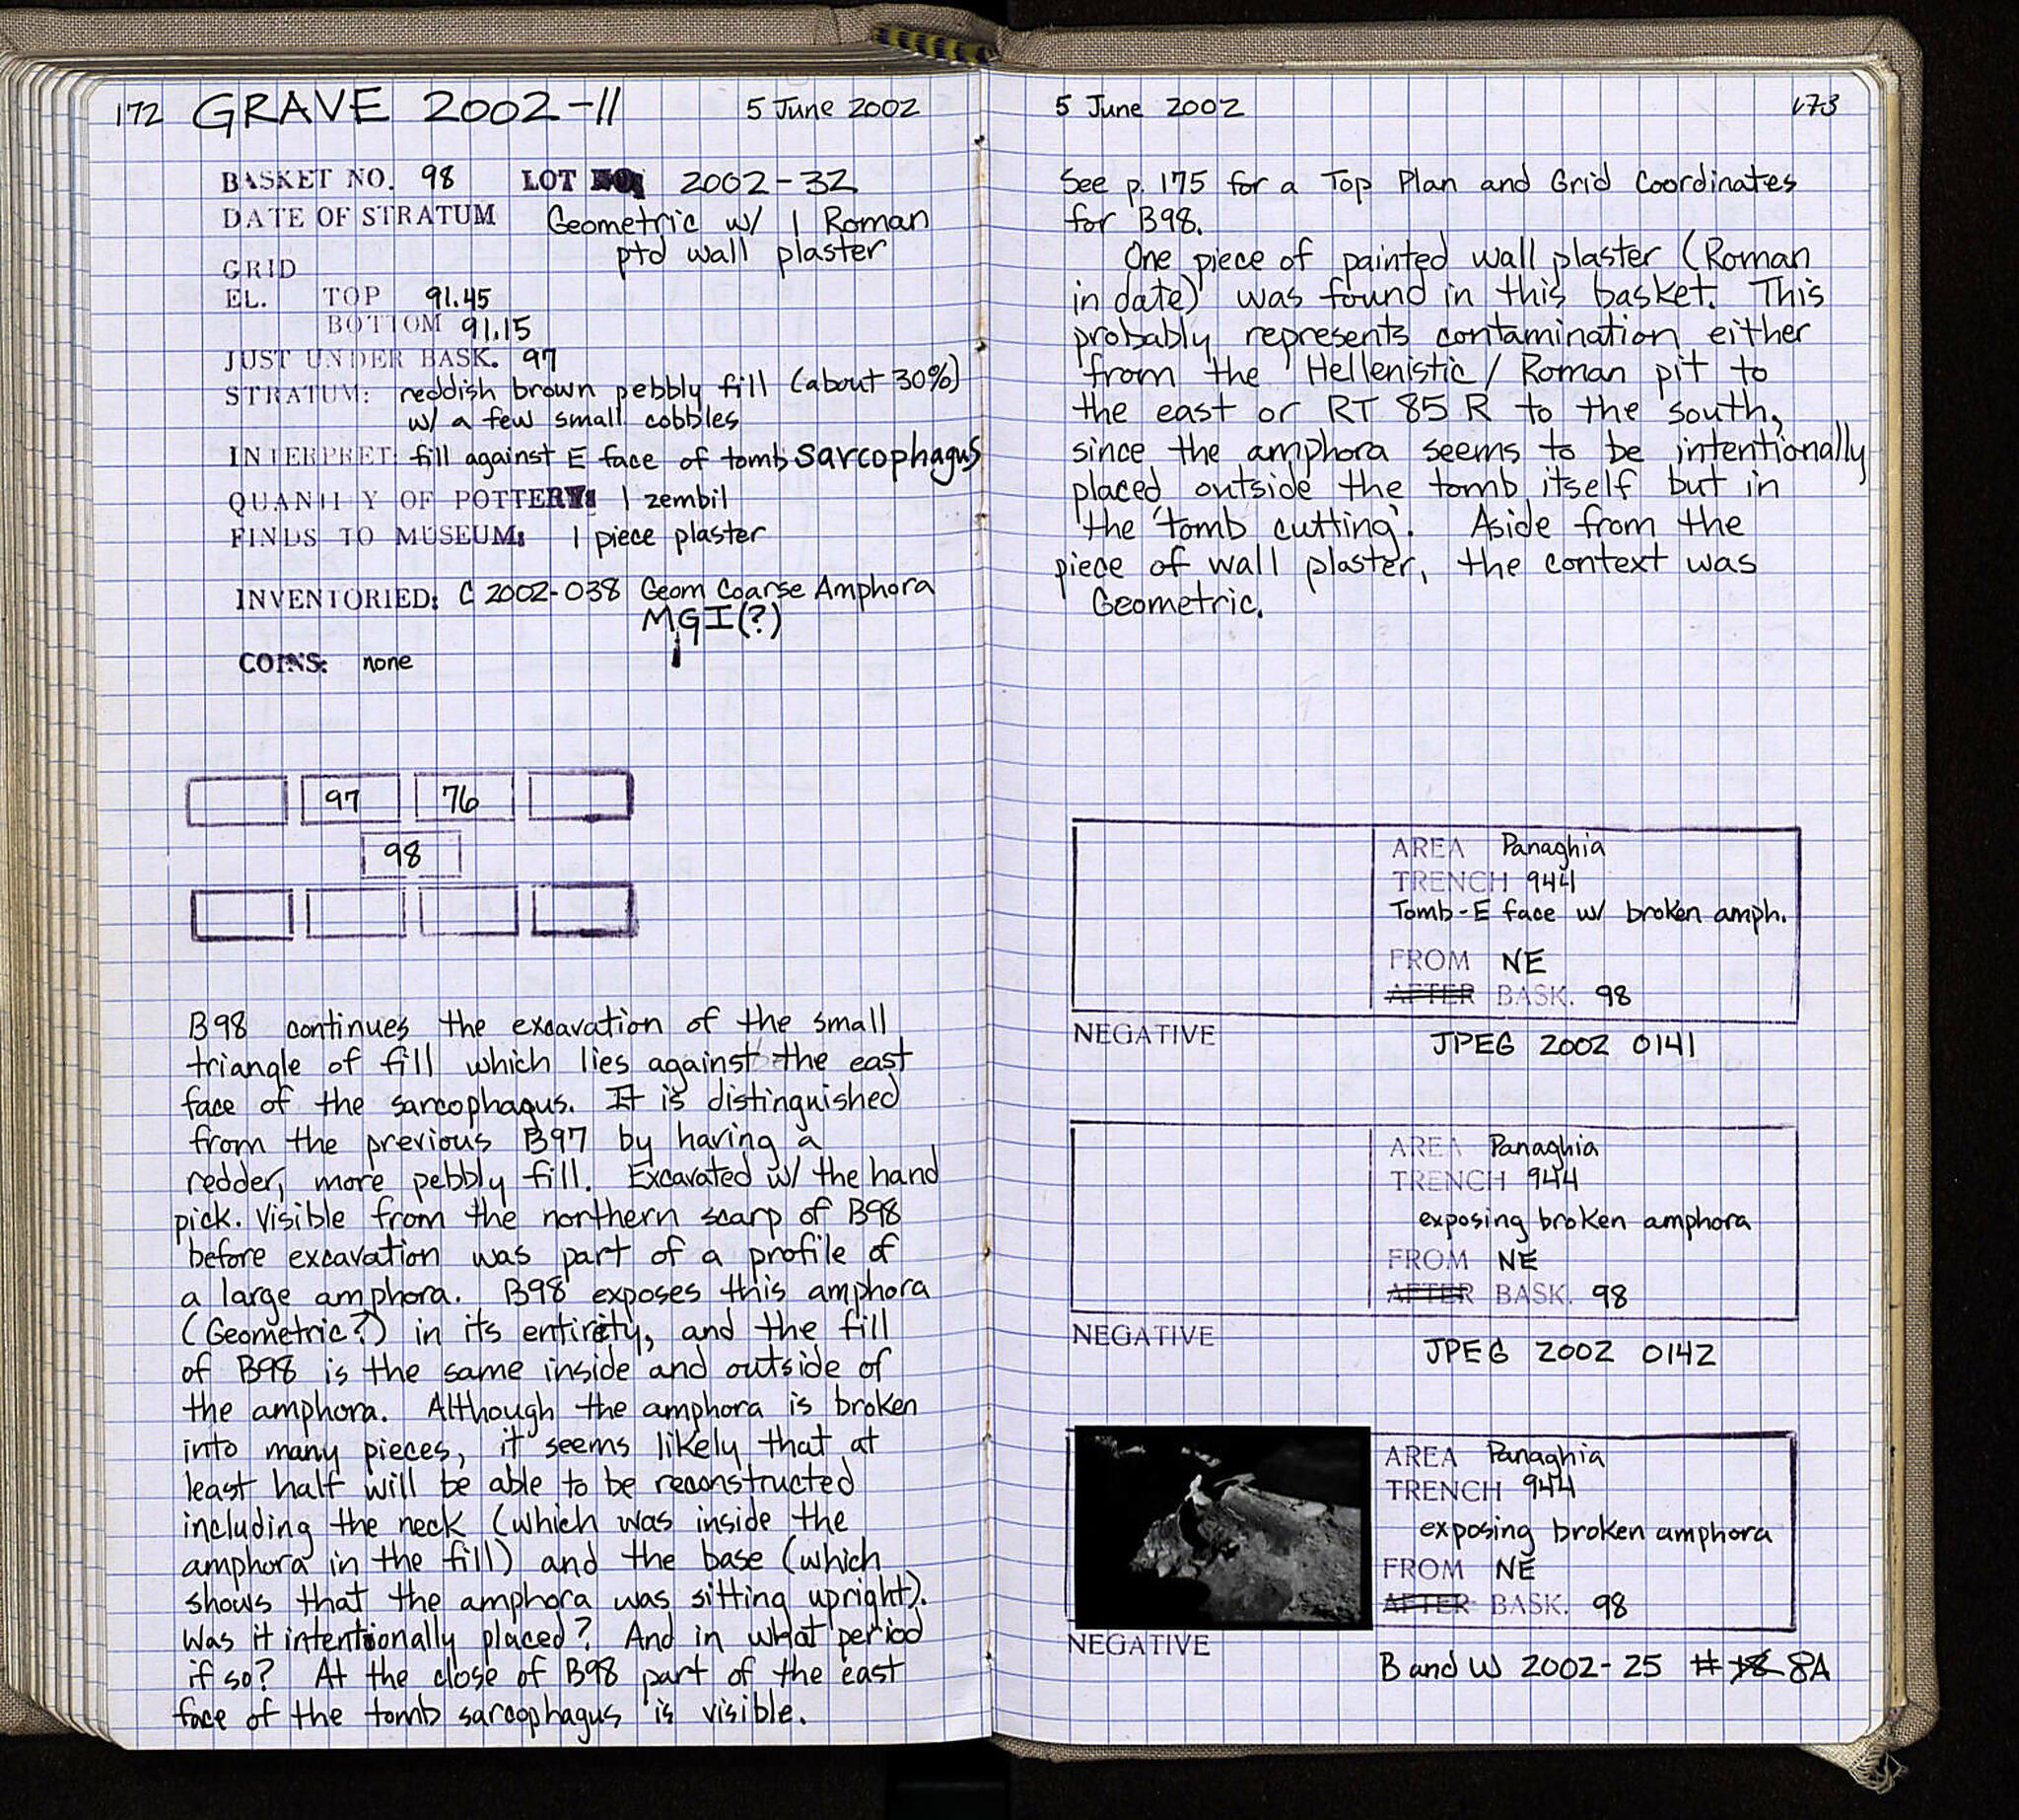 172 GRAVE 2002-11 5 June 2002
BASKET NO. 98 LOT NO: 2002-32
DATE OF STRATUM Geometric w/ 1 Roman
ptd wall plaster
GRID
EL. TOP 91.45
BOTTOM 91.15
JUST UNDER BASK. 97
STRATUM: reddish brown pebbly fill (about 30%)
w/ a few small cobbles
INTERPRET: fill against E face of tomb sarcophagus
QUANTITY OF POTTERY: 1 zembil
FINDS TO MUSEUM: 1 piece plaster
INVENTORIED: C 2002-038 Geom Coarse Amphora
MGI(?)
COINS: none
97 76
98
B98 continues the excavation of the small
triangle of fill which lies against the east
face of the sarcophagus. It is distinguished
from the previous B97 by having a
redder, more pebbly fill. Excavated w/ the hand
pick. Visible from the northern scarp of B98
before excavation was part of a profile of
a large amphora. B98 exposes this amphora
(Geometric?) in its entirety, and the fill
of B98 is the same inside and outside of
the amphora. Although the amphora is broken
into many pieces, it seems likely that at
least half will be able to be reconstructed
including the neck (which was inside the
amphora in the fill) and the base (which
shows that the amphora was sitting upright).
Was it intentionally placed? And in what period
if so? At the close of B98 part of the east
face of the tomb sarcophagus is visible.
5 June 2002 173
See p. 175 for a Top Plan and Grid Coordinates
for B98.
One piece of painted wall plaster (Roman
in date) was found in this basket. This
probably represents contamination either
from the Hellenistic/Roman pit to
the east or RT 85 R to the south,
since the amphora seems to be intentionally
placed outside the tomb itself but in
the 'tomb cutting'. Aside from the
piece of wall plaster, the context was
Geometric.
AREA Panaghia
TRENCH 944
Tomb-E face w/ broken amph.
FROM NE
AFTER BASK. 98
NEGATIVE JPEG 2002 0141
AREA Panaghia
TRENCH 944
exposing broken amphora
FROM NE
AFTER BASK. 98
NEGATIVE JPEG 2002 0142
AREA Panaghia
TRENCH 944
exposing broken amphora
FROM NE
AFTER BASK. 98
NEGATIVE
B and W 2002-25 # 8A